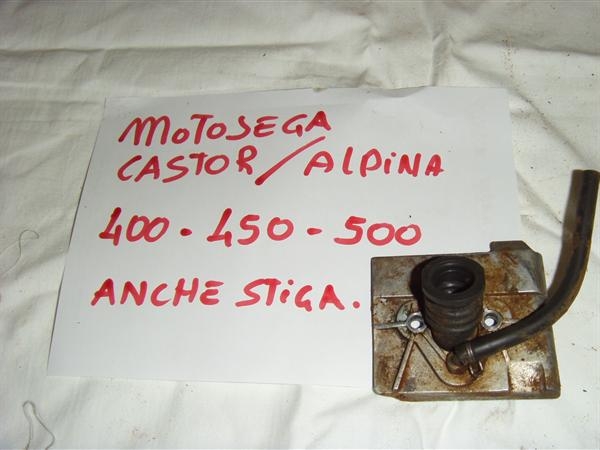 MOTOSEGA
CASTOR/ALPINA
400-450-500
ANCHE STIGA.